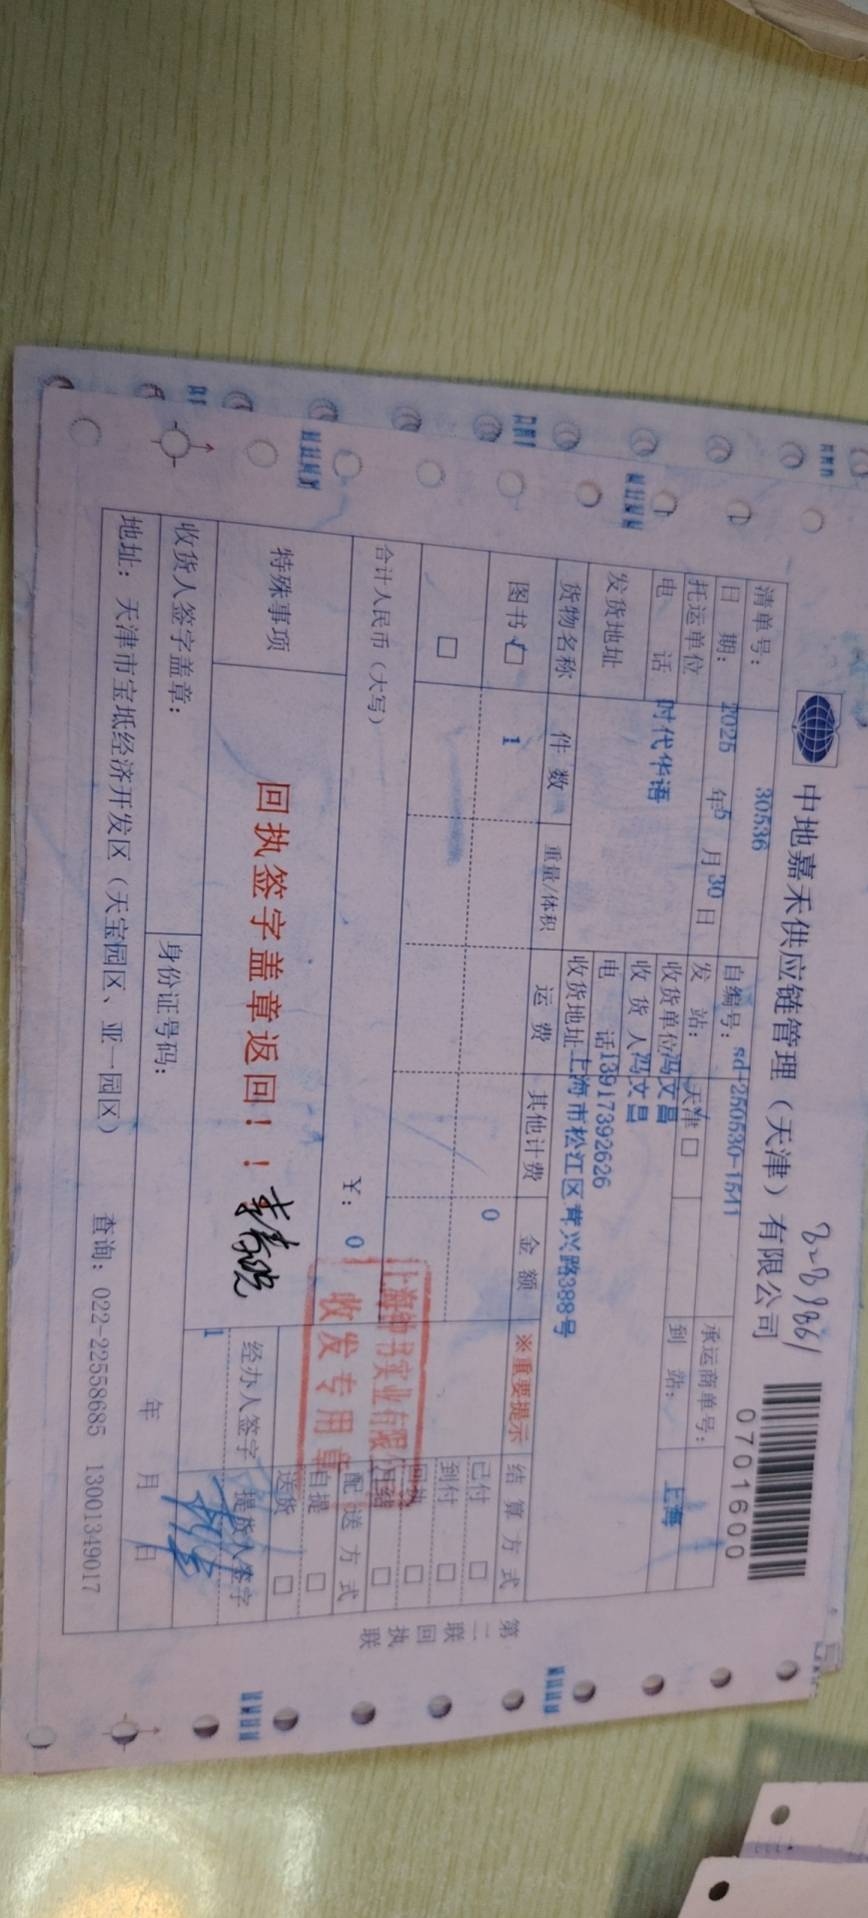 中地嘉禾供应链管理（天津）有限公司
0701600
清单号： 30536 自编号： sd-250530-1541 承运商单号：
日 期： 2025 年 5 月 30 日 发 站： 天津 □ 到 站： 上海
托运单位 时代华语 收货单位 冯文昌
电 话 收 货 人 冯文昌
发货地址 电 话 13917392626
收货地址 上海市松江区茸兴路388号
货物名称 件 数 重量/体积 运 费 其他计费 金 额 ※重要提示 结 算 方 式
图书 □ 1 0 已付 □
□ 到付 □
回执 □
月结 □
合计人民币（大写） ￥： 0 配 送 方 式
自提 □
送货 □
上海钟书实业有限公司
收发专用章
特殊事项 回执签字盖章返回！！ 经办人签字 提货人签字
1
收货人签字盖章： 身份证号码： 年 月 日
地址：天津市宝坻经济开发区（天宝园区、亚一园区） 查询：022-22558685 13001349017
第二联 回执联